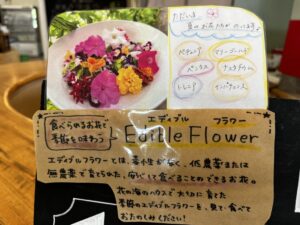 ただいま
夏のお花たちがのってます♪
ペチュニア
マリーゴールド
ペンタス
ナスタチウム
トレニア
インパチェンス
食べられるお花で
季節を味わう
エディブル フラワー
Edible Flower
エディブルフラワーとは、毒性がなく、低農薬または
無農薬で育てられた、安心して食べることのできるお花。
花の海のハウスで大切に育てた
季節のエディブルフラワーを、見て・食べて
おたのしみください!